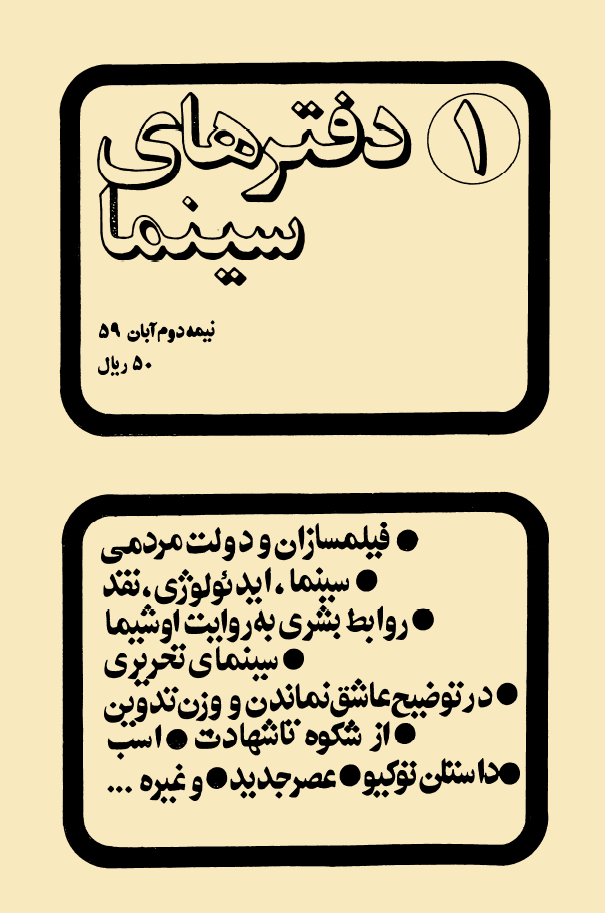 ۱ دفترهای
سینما
نیمه دوم آبان ۵۹
۵۰ ریال
● فیلمسازان و دولت مردمی
● سینما، ایدئولوژی، نقد
● روابط بشری به روایت اوشیما
● سینمای تحریری
● در توضیح عاشق نماندن و وزن تدوین
● از شکوه تا شهادت ● اسب
● داستان توکیو ● عصر جدید ● و غیره ...